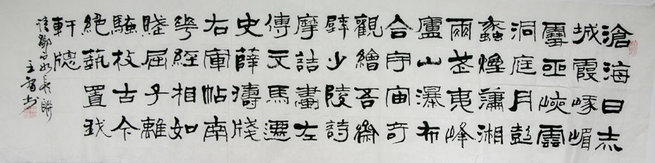 滄海日赤
城霞峨嵋
雪巫峽雲
洞庭月彭
蠡煙瀟湘
雨武夷峰
廬山瀑布
合宇宙奇
觀繪吾齋
壁少陵詩
摩詰畫左
傳文馬遷
史薛濤牋
右軍帖南
華經相如
賦屈子離
騷收古今
絕藝置我
軒牖
鄧石如長聯
書